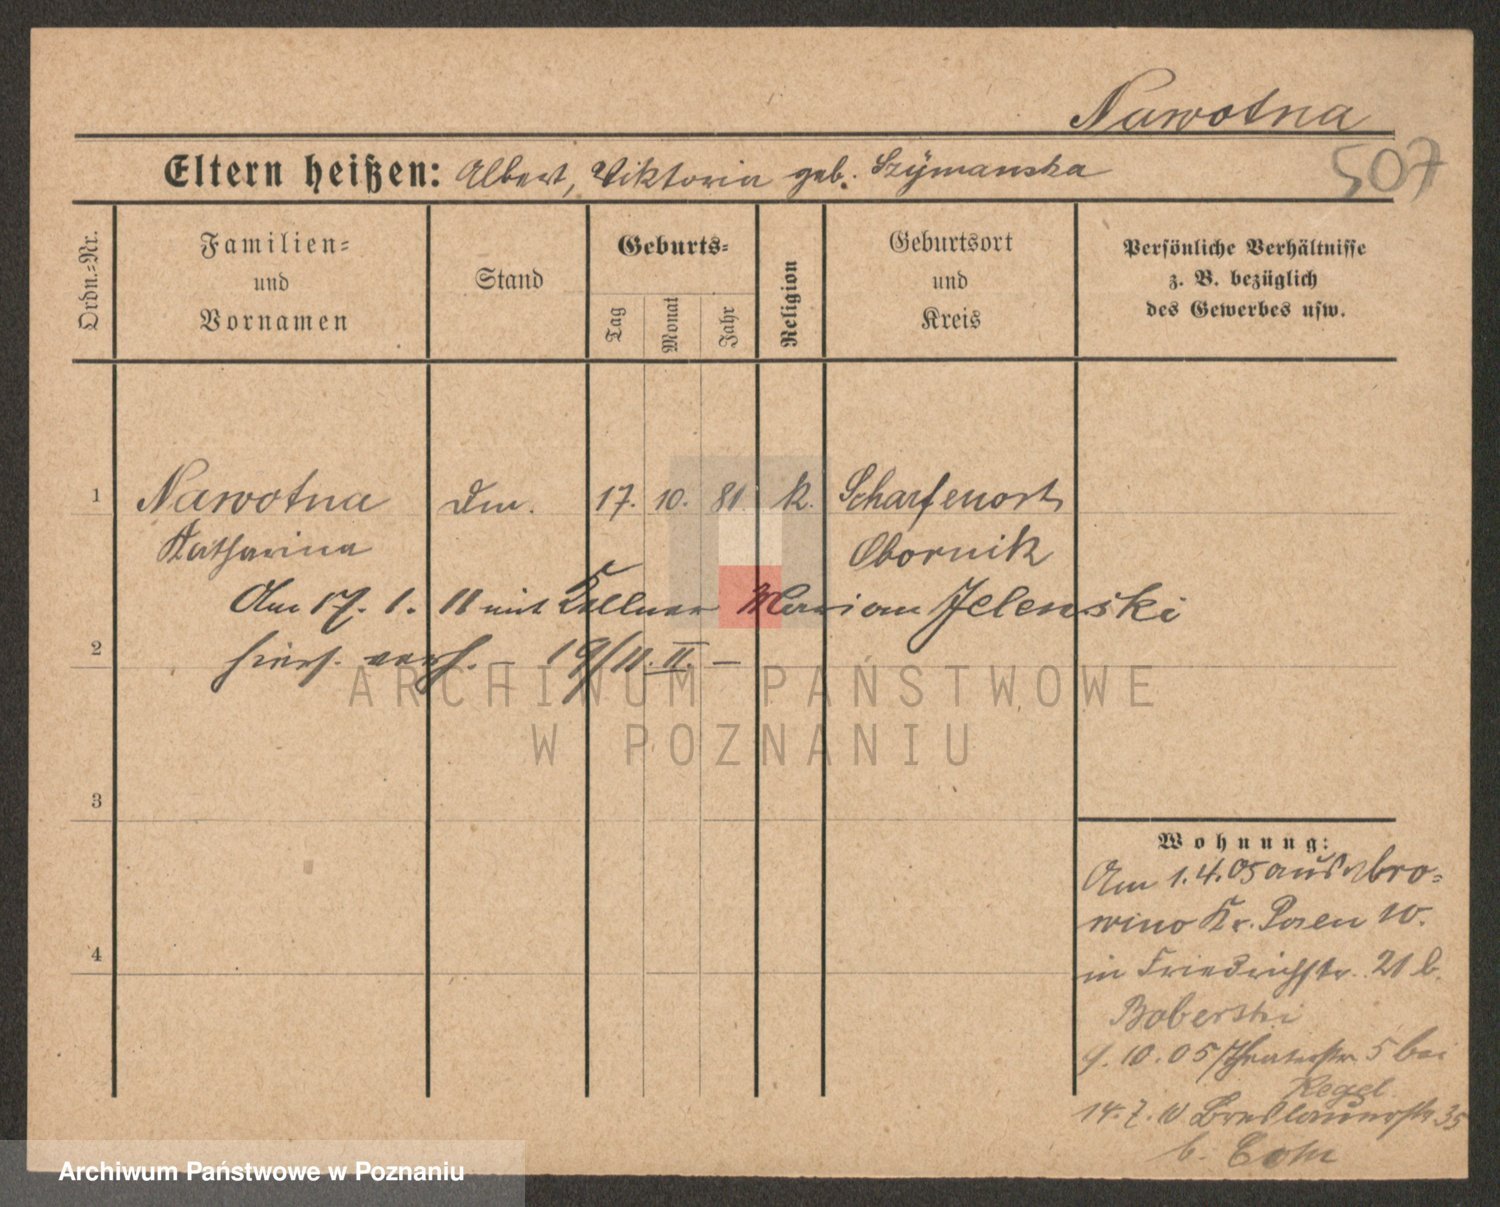 Nawotna
507
Eltern heißen: Albert, Viktoria geb. Szÿmanska
Ordn.=Nr.
Familien=
und
Vornamen
Stand
Geburts=
Tag
Monat
Jahr
Religion
Geburtsort
und
Kreis
Persönliche Verhältnisse
z. B. bezüglich
des Gewerbes usw.
1 Nawotna 17. 10. 81 k. Scharfenort
Katharina Obornik
Am 17. 1. 11 mit Kellner Marian Jelenski
2 hiers. verh. – 19/11. II. –
3
4
Wohnung:
Am 1.4.05 aus
wino Kr. Posen W.
in Friedrichstr. 21 b.
Boberski
10.05 Theaterstr. 5 bei
Kegel
14.7.10 Breslauerstr 35
b. Cohn
ARCHIWUM PAŃSTWOWE
W POZNANIU
Archiwum Państwowe w Poznaniu